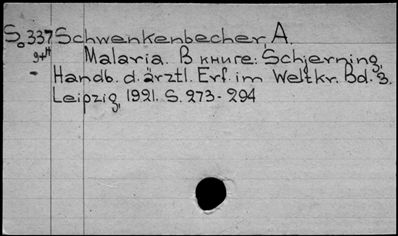 So 337 Schwenkenbecher, A.
Malaria. В книге: Schjerning,
Handb. d. ärztl. Erf. im Weltkr. Bd. 3.
Leipzig, 1921. S. 273-294